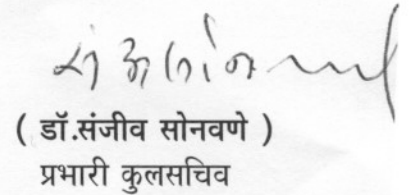 ( डॉ.संजीव सोनवणे )
प्रभारी कुलसचिव